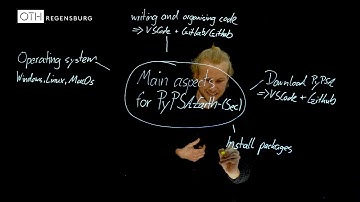 OTH REGENSBURG
writing and organising code
=> VSCode + GitLab/GitHub
Operating system
Windows, Linux, MacOs
Main aspects
for PyPSA-Earth-(Sec)
Download PyPSA
=> VSCode + GitHub
Install packages